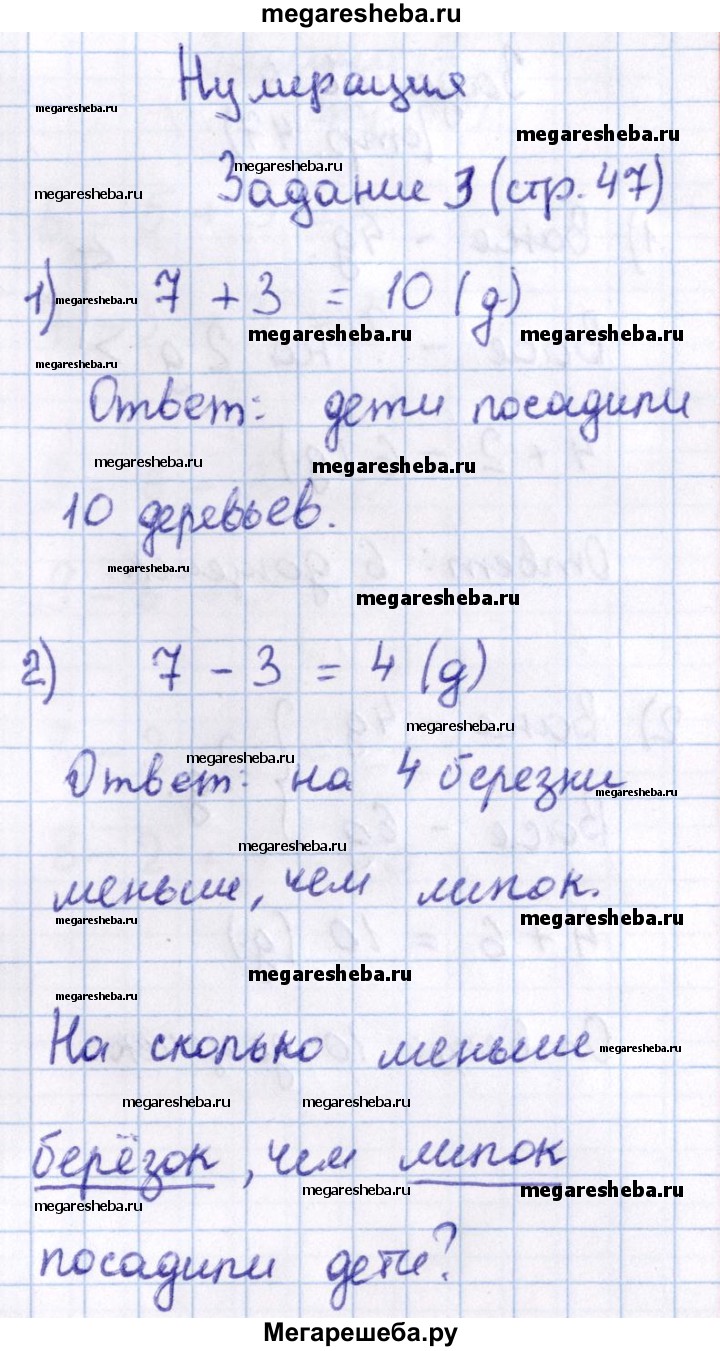 megaresheba.ru
Нумерация
megaresheba.ru
megaresheba.ru
megaresheba.ru
megaresheba.ru
Задание 3 (стр. 47)
1) 7 + 3 = 10 (д)
megaresheba.ru
megaresheba.ru megaresheba.ru
megaresheba.ru
Ответ: дети посадили
megaresheba.ru megaresheba.ru
10 деревьев.
megaresheba.ru
megaresheba.ru
2) 7 - 3 = 4 (д)
megaresheba.ru
megaresheba.ru
Ответ: на 4 березки
megaresheba.ru
megaresheba.ru
меньше, чем липок.
megaresheba.ru megaresheba.ru
megaresheba.ru
megaresheba.ru
На сколько меньше
megaresheba.ru
megaresheba.ru megaresheba.ru
берёзок, чем липок
megaresheba.ru megaresheba.ru megaresheba.ru
посадили дети?
Мегарешеба.ру